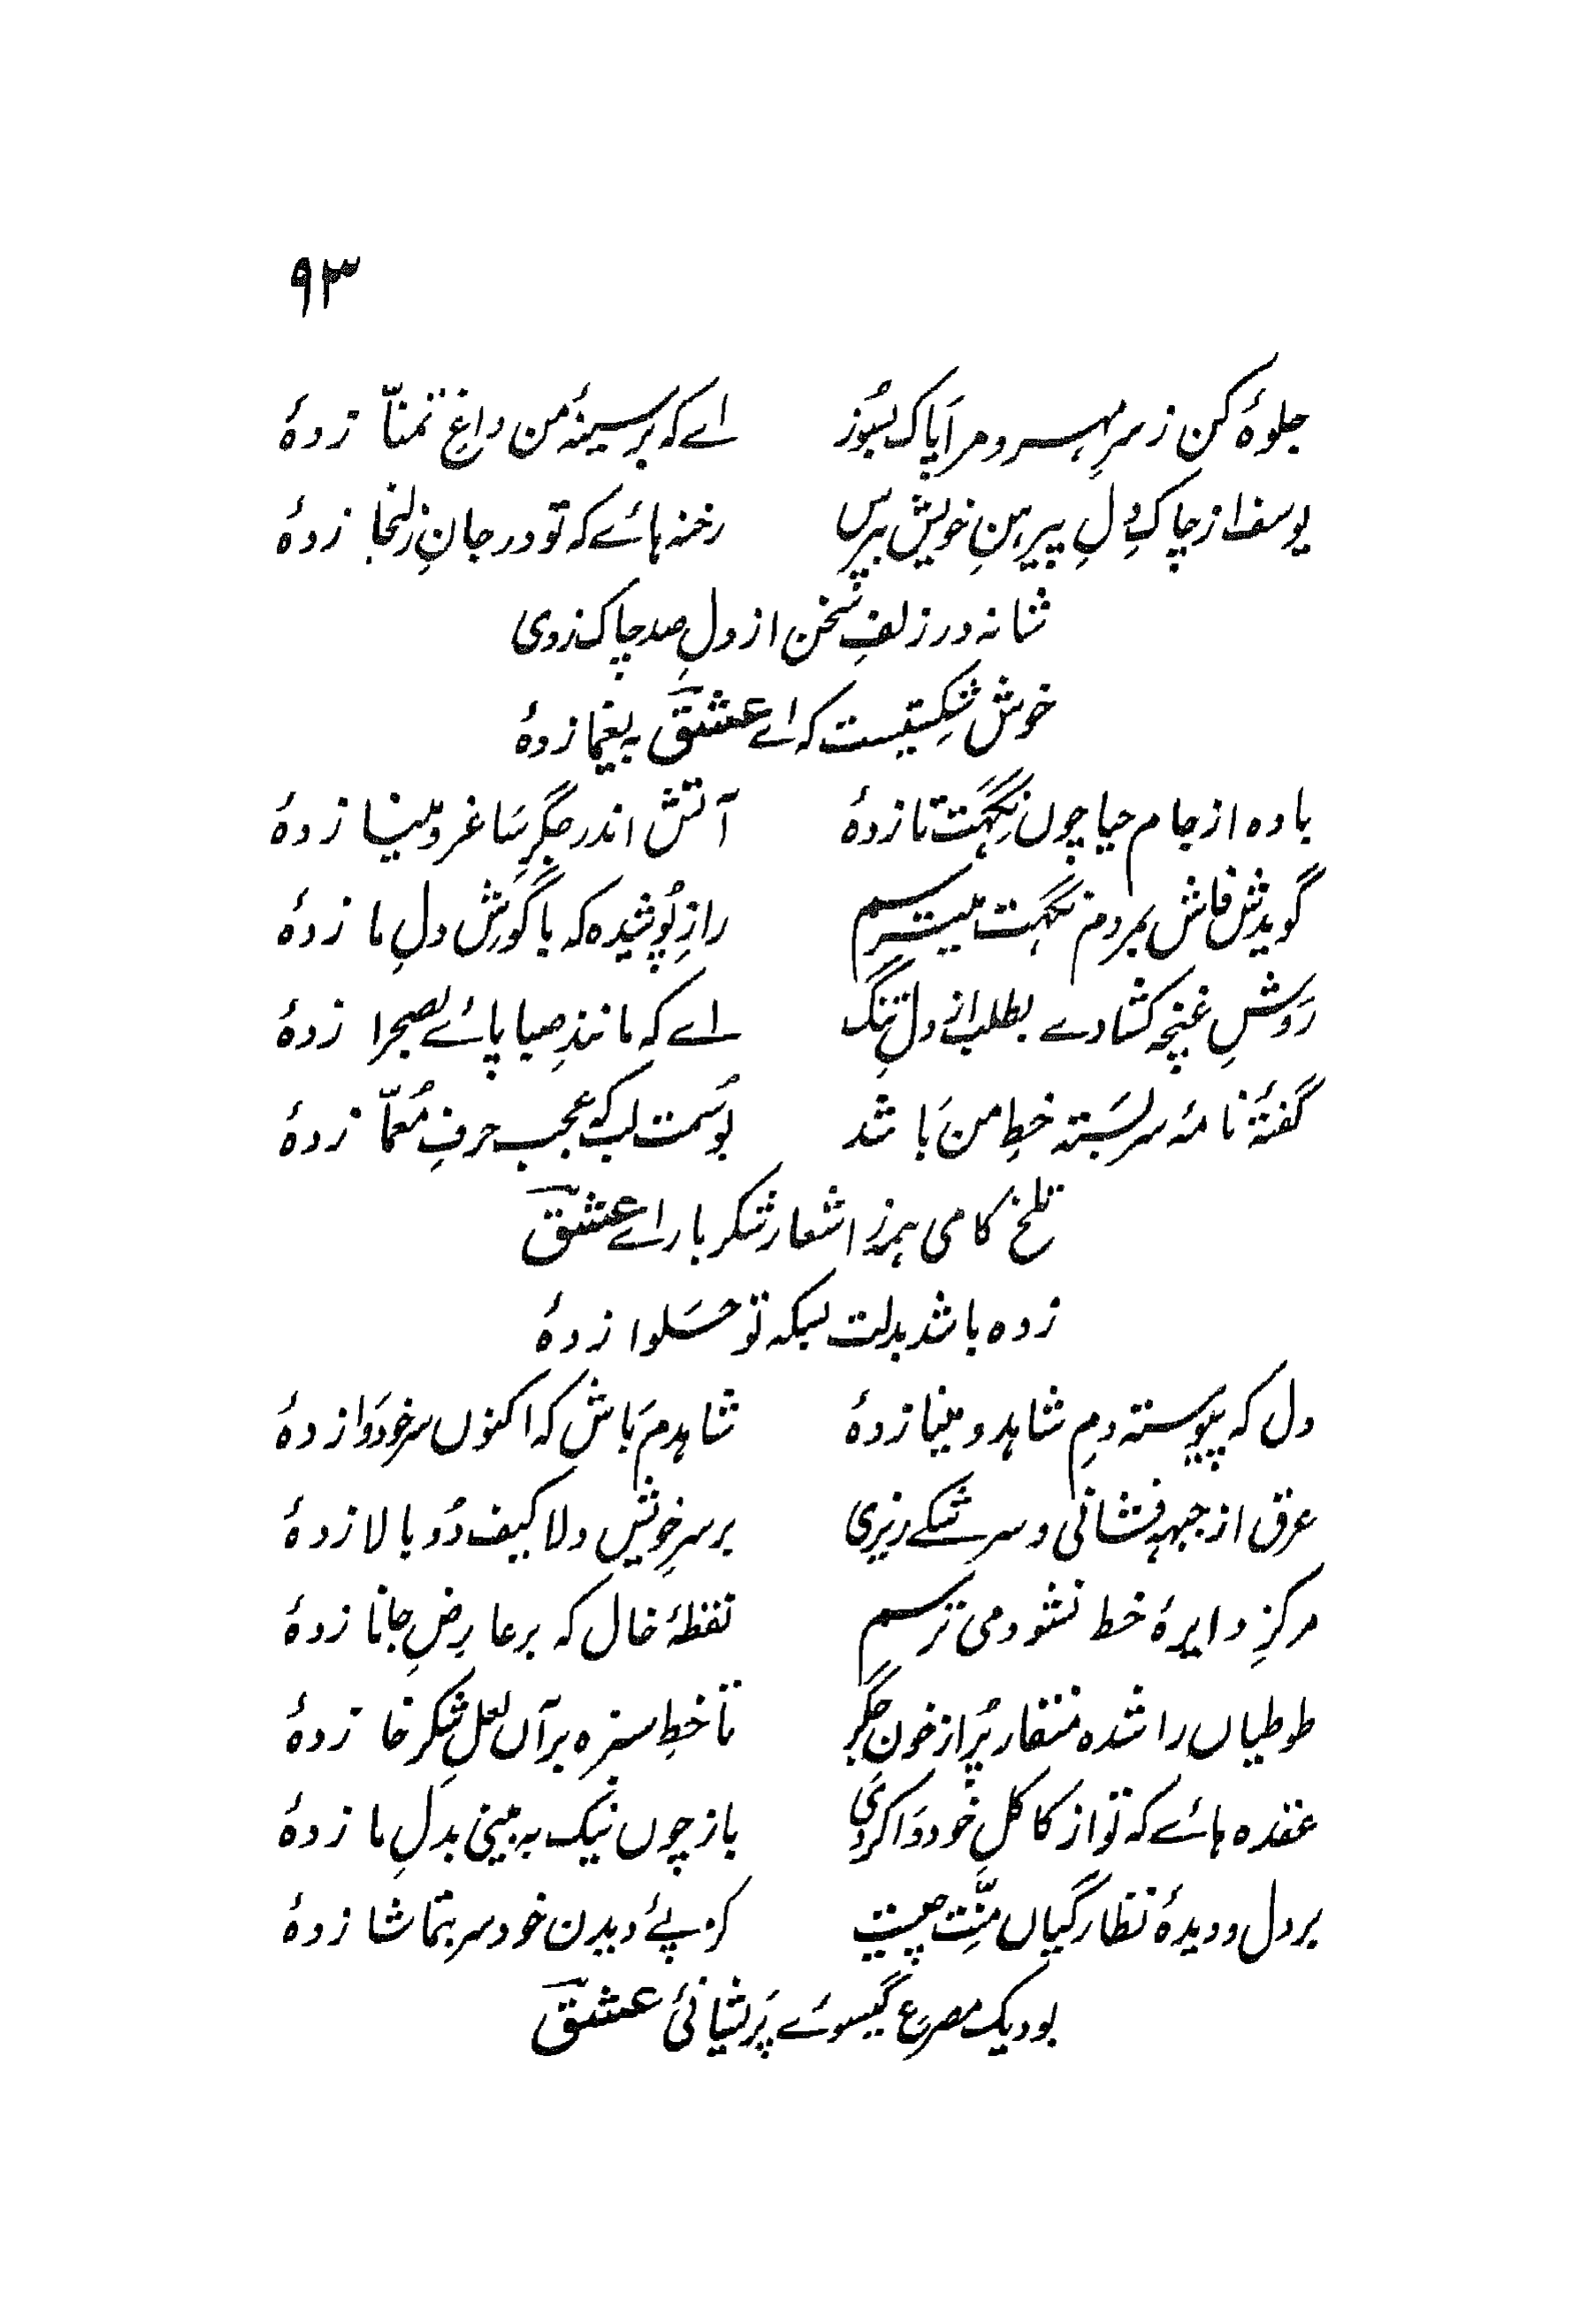 ۹۳
جلوۂ کن ز سرِ مہر و مرا پاک بسُوز اے کہ بر سینۂ من داغِ تمنّا زدۂ
یوسف از چاکِ دلِ پیرہنِ خویش بپرس رخنہ ہائے کہ تو در جانِ زلیخا زدۂ
شانہ در زلفِ سخن از دلِ صد چاک زدی
خوش شکستیست کہ اے عشقؔ بہ یغما زدۂ
بادہ از جام حیا چوں نگہت تا زدۂ آتش اندر جگرِ ساغر و مینا زدۂ
گویدش فاش بمردم نگہت میترسم رازِ پُوشیدہ کہ با گوشِ دلِ ما زدۂ
رَوشِ غنچہ کشادے بطلب از دلِ تنگ اے کہ مانندِ صبا پائے بصحرا زدۂ
گفتۂ نامۂ سر بستہ خطِ من باشد بوسُمت لب کو عجب حرفِ مُعمّا زدۂ
تلخ کامی ہمہ ز اشعار شکر بار اے عشقؔ
زدہ باشد بدلت بسکہ تو حلوا زدۂ
دل کہ پیوستہ دمِ شاہد و مینا زدۂ شاہدم باش کہ اکنوں سرِ خود وا زدۂ
عرق از جبہہ فشانی و سرشکے ریزی بر سرِ خویش دلا کیف دُو بالا زدۂ
مرکزِ دایرۂ خط نشود می ترسم نقطۂ خال کہ بر عارضِ جانا زدۂ
طوطیاں را شدہ منقار پُر از خونِ جگر تا خطِ سبزہ برآں لعلِ شکر خا زدۂ
عقدہ ہائے کہ تو از کاکلِ خود وا کردی باز چوں نیک بہ بینی بدلِ ما زدۂ
بر دل و دیدۂ نظارگیاں منّت چیست کز پئے دیدن خود سر بتماشا زدۂ
بود یک مصرعِ گیسوئے پَریشانئ عشقؔ